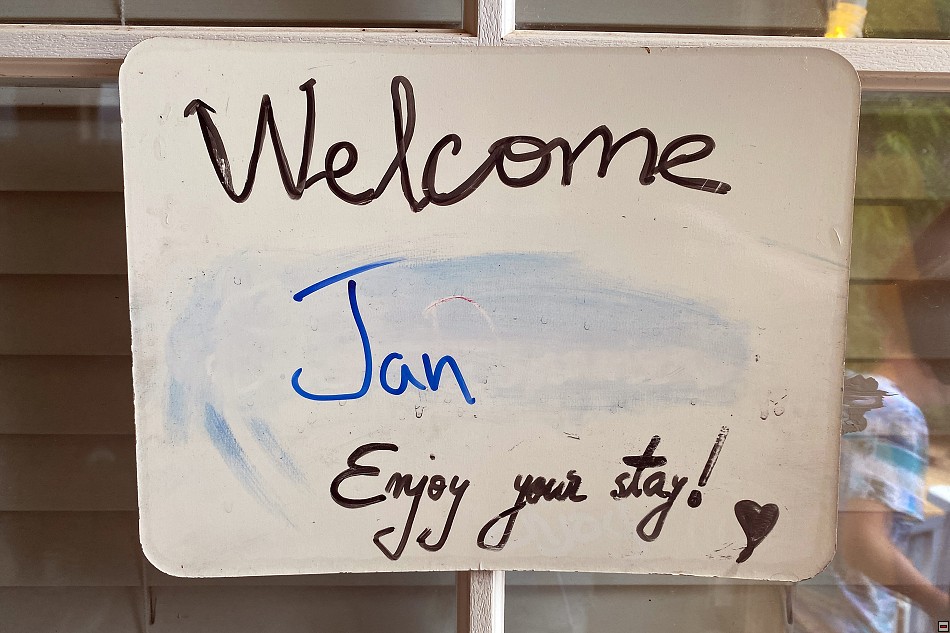 Welcome
Jan
Enjoy your stay!